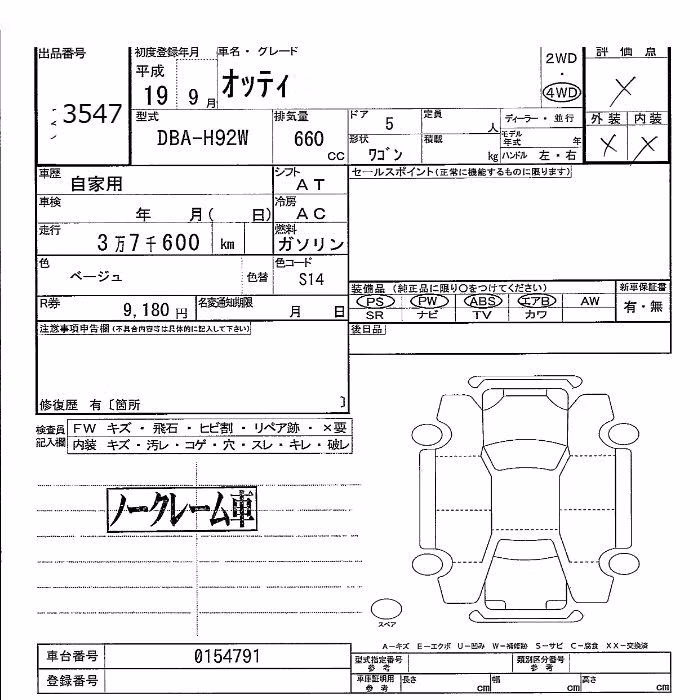 出品番号
3547
初度登録年月 車名・グレード
平成
19 9月 オッティ
2WD
・
4WD
評価点
X
外装 内装
X X
型式
DBA-H92W
排気量
660
cc
ドア
5
定員
人
形状
ワゴン
積載
kg
ディーラー・並行
モデル年式 年
ハンドル 左・右
車歴
自家用
シフト
AT
車検
年 月( 日)
冷房
AC
走行
3万7千600 km
燃料
ガソリン
色
ベージュ
色替
色コード
S14
R券
9,180円
名変通知期限
月 日
セールスポイント(正常に機能するものに限ります)
装備品 (純正品に限り○をつけてください)
新車保証書
PS PW ABS エアB AW
有・無
SR ナビ TV カワ
後日品
注意事項申告欄(不具合内容等は具体的に記入して下さい)
修復歴 有〔箇所 〕
検査員記入欄
FW キズ・飛石・ヒビ割・リペア跡・×要
内装 キズ・汚レ・コゲ・穴・スレ・キレ・破レ
ノークレーム車
スペア
A−キズ E−エクボ U−凹み W−補修跡 S−サビ C−腐食 XX−交換済
車台番号
0154791
登録番号
型式指定番号
参考
類別区分番号
参考
車庫証明用
参考
長さ cm
幅 cm
高さ cm